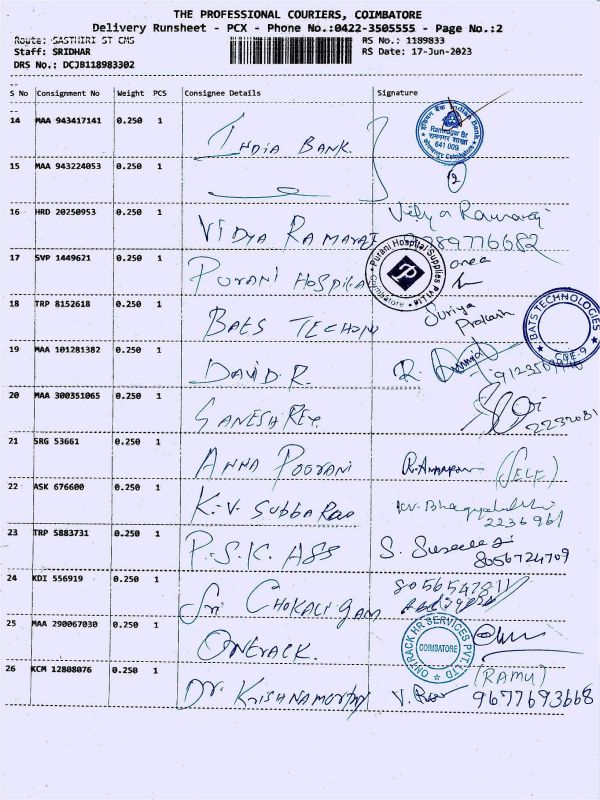 THE PROFESSIONAL COURIERS, COIMBATORE
Delivery Runsheet - PCX - Phone No.:0422-3505555 - Page No.:2
Route: SASTHIRI ST CMS RS No.: 1189833
Staff: SRIDHAR RS Date: 17-Jun-2023
DRS No.: DCJB118983302
S No Consignment No Weight PCS Consignee Details Signature
14 MAA 943417141 0.250 1 INDIA BANK.
Indian Bank
Ramnagar Br
641 009
Coimbatore
15 MAA 943224053 0.250 1
2
16 HRD 20250953 0.250 1 VIDYA RAMARAJ Vidya Ramaraj
9789776682
17 SVP 1449621 0.250 1 PURANI HOSPITAL
Purani Hospital Supplies
Coimbatore
P
18 TRP 8152618 0.250 1 BATS TECHNO Suriya Prakash
BATS TECHNOLOGIES
CBE-9
19 MAA 101281382 0.250 1 DAVID.R.
20 MAA 300351065 0.250 1 GANESH REY.
21 SRG 53661 0.250 1 ANNA POORANI (SELF)
22 ASK 676600 0.250 1 K.V. SUBBA Rao K.V. Bhagyalakshmi
2236961
23 TRP 5883731 0.250 1 P.S.K. ASS
8056724709
24 KDI 556919 0.250 1 Sri CHOKALIGAM
25 MAA 290067030 0.250 1 ONTRACK.
ONTRACK HR SERVICES PVT. LTD
COIMBATORE
26 KCM 12808076 0.250 1 Dr. KRISHNAMORTHY (RAMU)
9677693668